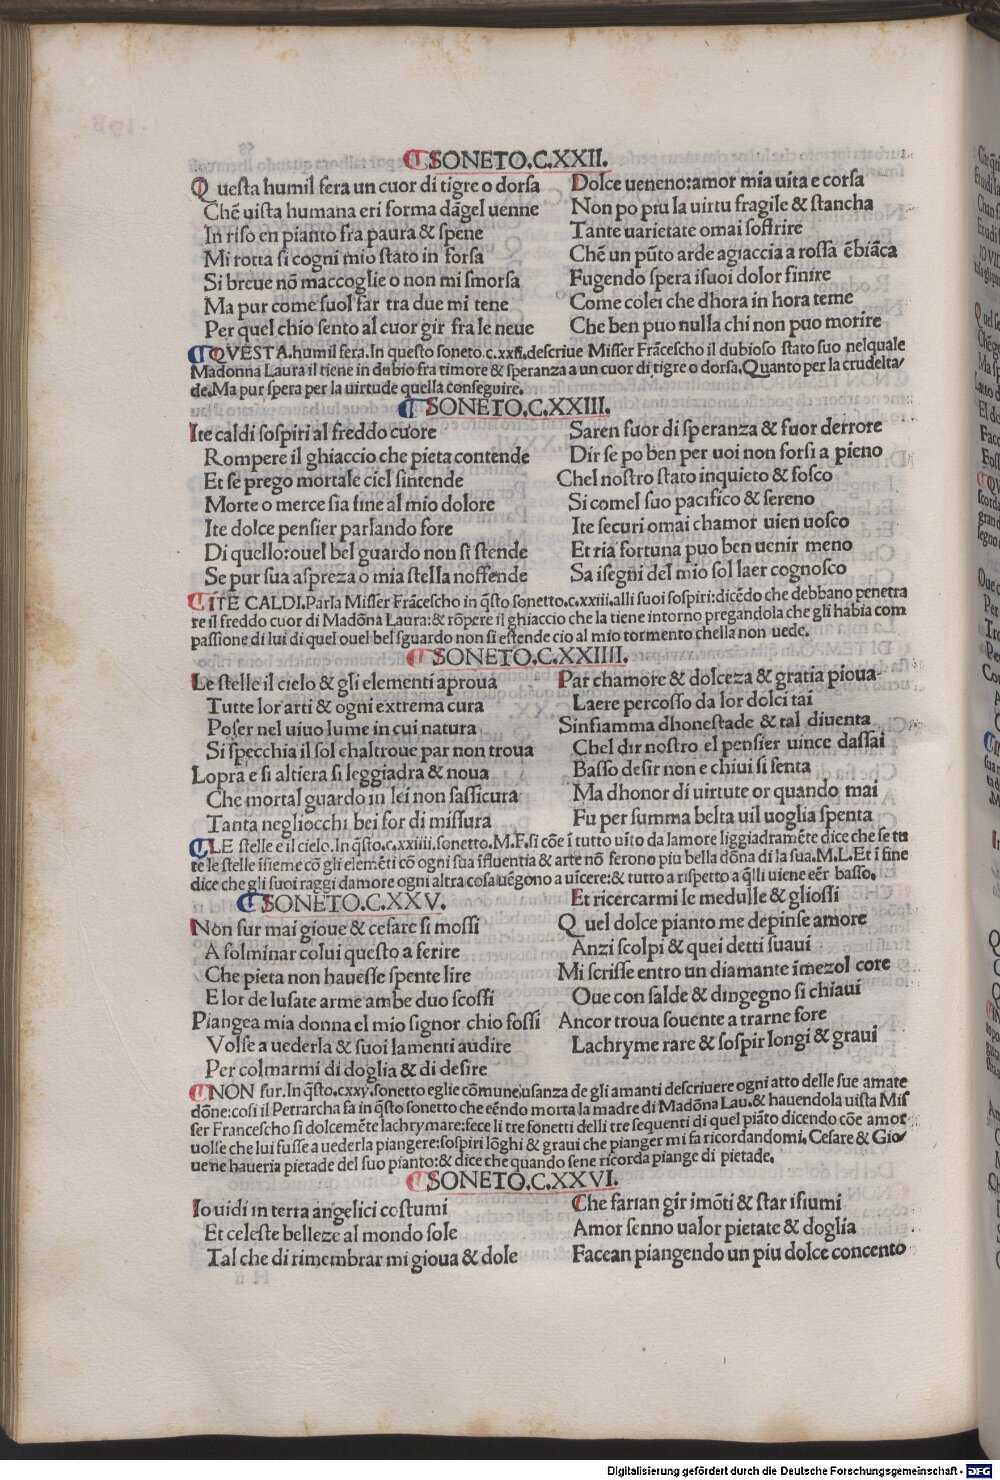 SONETO.C.XXII.
Questa humil fera un cuor di tigre o dorsa
Chē uista humana eri forma dāgel uenne
In riso en pianto fra paura & spene
Mi rotta si cogni mio stato in forsa
Si breue nō maccoglie o non mi smorsa
Ma pur come suol far tra due mi tene
Per quel chio sento al cuor gir fra le neue
Dolce ueneno:amor mia uita e corsa
Non po piu la uirtu fragile & stancha
Tante uarietate omai soffrire
Chē un pūto arde agiaccia a rossa ēbiāca
Fugendo spera isuoi dolor finire
Come colei che dhora in hora teme
Che ben puo nulla chi non puo morire
QVESTA.humil fera.In questo soneto.c.xxii.descriue Misser Frācescho il dubioso stato suo nelquale
Madonna Laura il tiene in dubio fra timore & speranza a un cuor di tigre o dorsa.Quanto per la crudelta-
de.Ma pur spera per la uirtude quella conseguire.
SONETO.C.XXIII.
Ite caldi sospiri al freddo cuore
Rompere il ghiaccio che pieta contende
Et se prego mortale ciel sintende
Morte o merce sia fine al mio dolore
Ite dolce pensier parlando fore
Di quello:ouel bel guardo non si stende
Se pur sua aspreza o mia stella noffende
Saren fuor di speranza & fuor derrore
Dir se po ben per uoi non forsi a pieno
Chel nostro stato inquieto & fosco
Si comel suo pacifico & sereno
Ite securi omai chamor uien uosco
Et ria fortuna puo ben uenir meno
Sa isegni del mio sol laer cognosco
ITE CALDI.Parla Misser Frācescho in q̄sto sonetto.c.xxiii.alli suoi sospiri:dicēdo che debbano penetra
re il freddo cuor di Madōna Laura:& rōpere il ghiaccio che la tiene intorno pregandola che gli habia com
passione di lui di quel ouel bel sguardo non si estende cio al mio tormento chella non uede.
SONETO.C.XXIIII.
Le stelle il cielo & gli elementi aproua
Tutte lor arti & ogni extrema cura
Poser nel uiuo lume in cui natura
Si specchia il sol chaltroue par non troua
Lopra e si altiera si leggiadra & noua
Che mortal guardo in lei non sassicura
Tanta negliocchi bei for di missura
Par chamore & dolceza & gratia pioua
Laere percosso da lor dolci tai
Sinfiamma dhonestade & tal diuenta
Chel dir nostro el pensier uince dassai
Basso desir non e chiui si senta
Ma dhonor di uirtute or quando mai
Fu per summa belta uil uoglia spenta
LE stelle e il cielo.In q̄sto.c.xxiiii.sonetto.M.F.si cōe ī tutto uīto da lamore liggiadramēte dice che se tu
te le stelle īsieme cō gli elemēti cō ogni sua īfluentia & arte nō ferono piu bella dōna di la sua.M.L.Et ī fine
dice che gli suoi raggi damore ogni altra cosa uēgono a uīcere:& tutto a rispetto a q̄lli uiene eēr basso.
SONETO.C.XXV.
Non fur mai gioue & cesare si mossi
A folminar colui questo a ferire
Che pieta non hauesse spente lire
E lor de lusate arme ambe duo scossi
Piangea mia donna el mio signor chio fossi
Volse a uederla & suoi lamenti audire
Per colmarmi di doglia & di desire
Et ricercarmi le medulle & gliossi
Quel dolce pianto me depinse amore
Anzi scolpi & quei detti suaui
Mi scrisse entro un diamante īmezol core
Oue con salde & dingegno si chiaui
Ancor troua souente a trarne fore
Lachryme rare & sospir longi & graui
NON fur.In q̄sto.cxxv.sonetto eglie cōmune usanza de gli amanti descriuere ogni atto delle sue amate
dōne:cosi il Petrarcha fa in q̄sto sonetto che eēndo morta la madre di Madōna Lau.& hauendola uista Mis
ser Francescho si dolcemēte lachrymare:fece li tre sonetti delli tre sequenti di quel piāto dicendo cōe amor
uolse che lui fusse a uederla piangere:sospiri lōghi & graui che pianger mi fa ricordandomi.Cesare & Gio
ue ne haueria pietade del suo pianto:& dice che quando sene ricorda piange di pietade.
SONETO.C.XXVI.
Io uidi in terra angelici costumi
Et celeste belleze al mondo sole
Tal che di rimembrar mi gioua & dole
Che farian gir imōti & star ifiumi
Amor senno ualor pietate & doglia
Facean piangendo un piu dolce concento
Digitalisierung gefördert durch die Deutsche Forschungsgemeinschaft - DFG